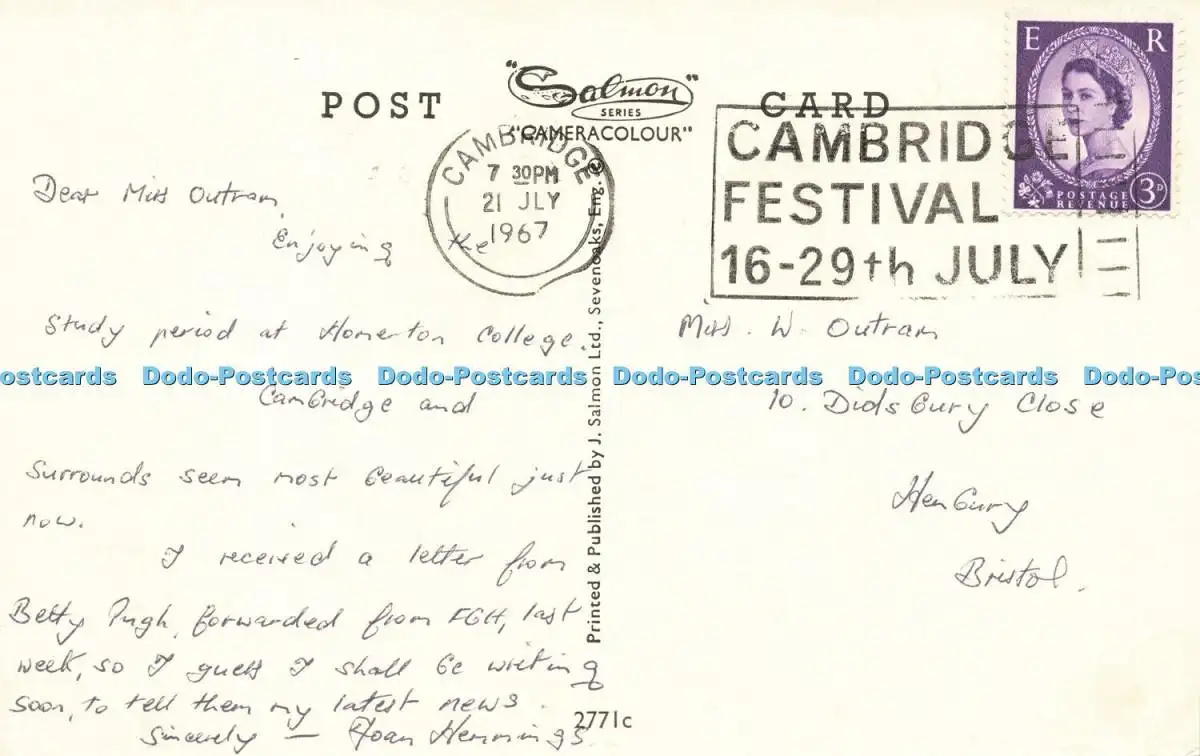 POST CARD
"Salmon"
SERIES
"CAMERACOLOUR"
CAMBRIDGE
7 30PM
21 JLY
1967
CAMBRIDGE
FESTIVAL
16-29th JULY
E R
POSTAGE
REVENUE
3D
Dear Miss Outram,
Enjoying the
Study period at Homerton College.
Cambridge and
Surrounds seem most beautiful just
now.
I received a letter from
Betty Pugh, forwarded from FGH, last
week, so I guess I shall be writing
soon, to tell them my latest news.
Sincerely — Joan Hemmings.
Printed & Published by J. Salmon Ltd., Sevenoaks, Eng. ©
2771c
Miss. W. Outram
10. Didsbury Close
Henbury
Bristol.
ostcards Dodo-Postcards Dodo-Postcards Dodo-Postcards Dodo-Postcards Dodo-Pos